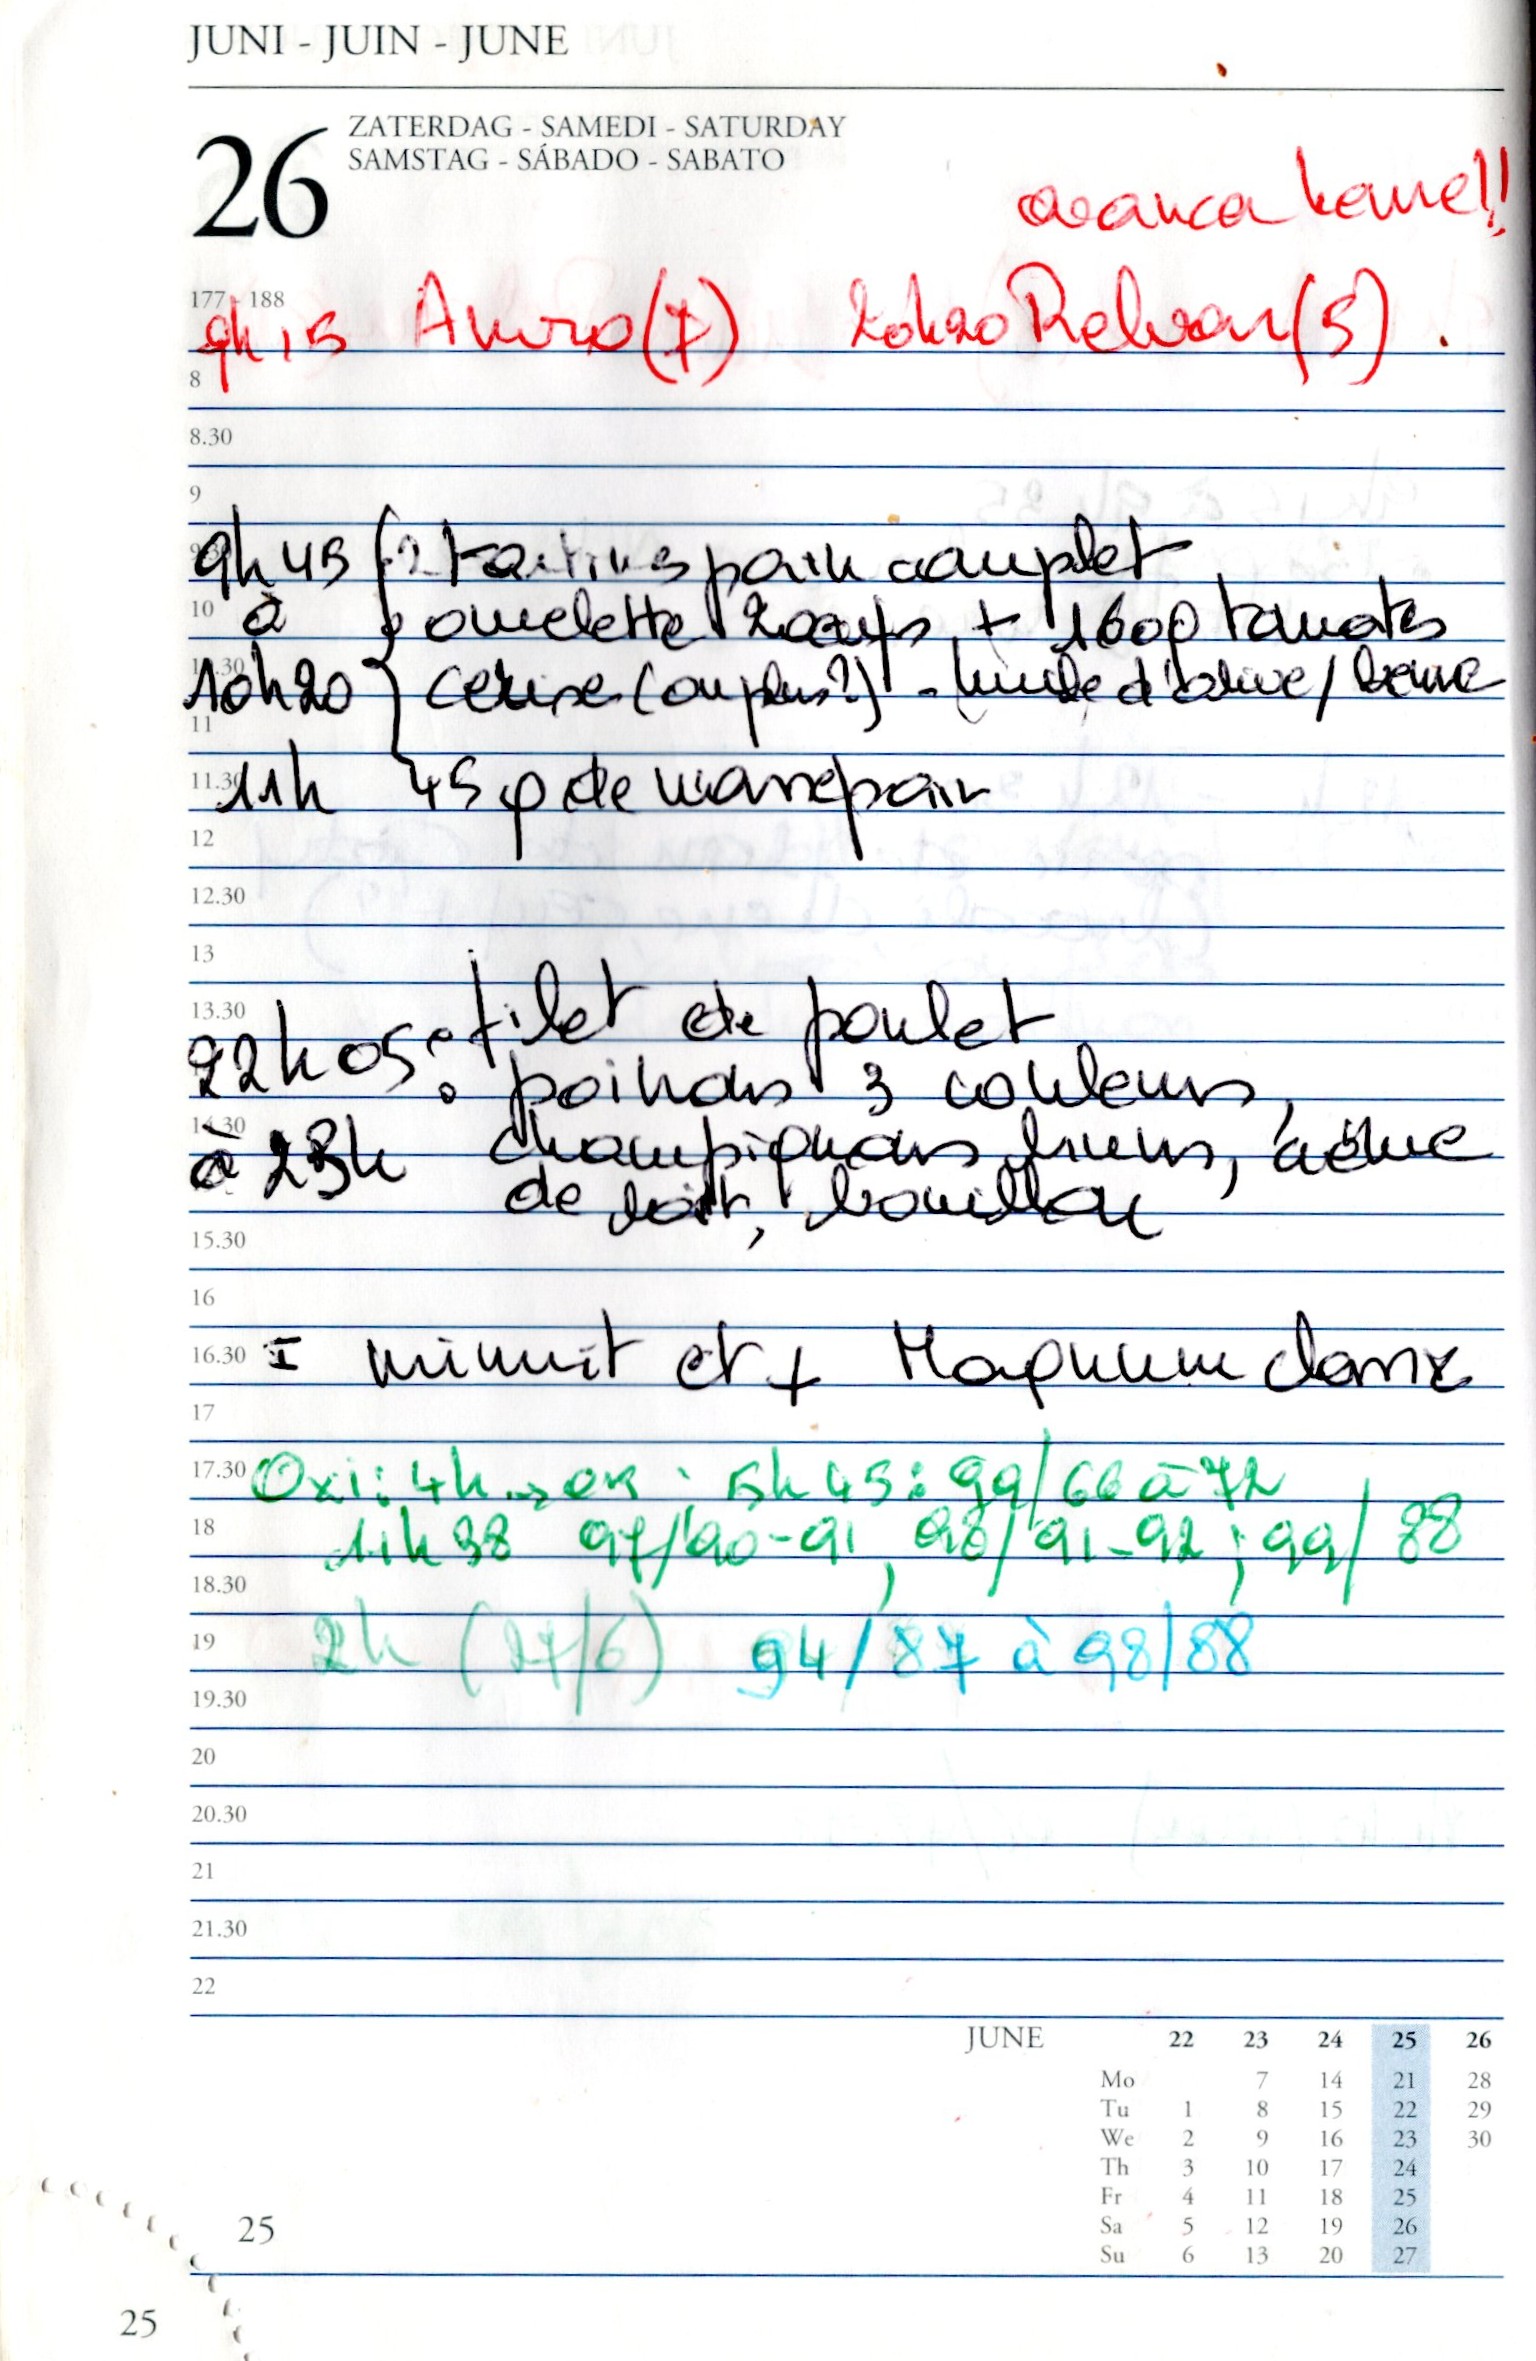 JUNI - JUIN - JUNE
26
ZATERDAG - SAMEDI - SATURDAY
SAMSTAG - SÁBADO - SABATO
177 - 188
9h15 Anoro (7) (5).
8
8.30
9
9h45 2 tartines pain complet
10
à omelette 2 oeufs + 160g tomates
10h20 cerise (ou plus?) - huile d'olive /
11
11.30
11h 45g de massepain
12
12.30
13
13.30
22h05: filet de poulet
poivrons 3 couleurs,
14.30
à 23h champignons bruns, crème
de lait, bouillon
15.30
16
16.30
minuit et + Magnum classic
17
17.30
Oxi: 4h → 5h45: 99/66 à 72
18
11h38 97/90-91, 98/91-92; 99/88
18.30
19
2h (27/6) 94/87 à 98/88
19.30
20
20.30
21
21.30
22
JUNE 22 23 24 25 26
Mo 7 14 21 28
Tu 1 8 15 22 29
We 2 9 16 23 30
Th 3 10 17 24
Fr 4 11 18 25
Sa 5 12 19 26
Su 6 13 20 27
25
25